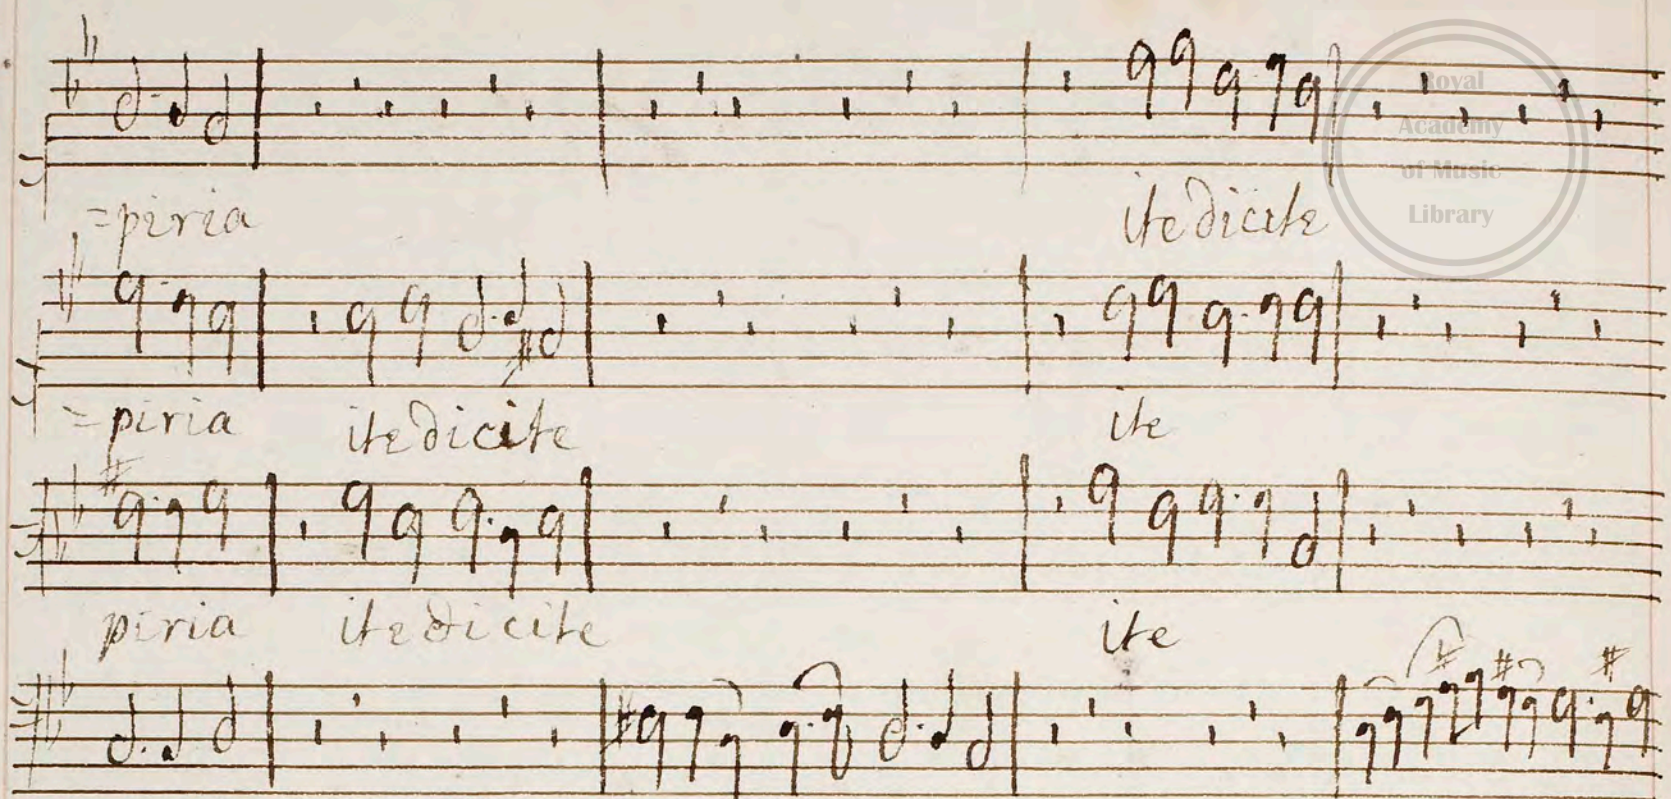 Royal
Academy
of Music
Library
=piria ite dicite
=piria ite dicite ite
piria ite dicite ite